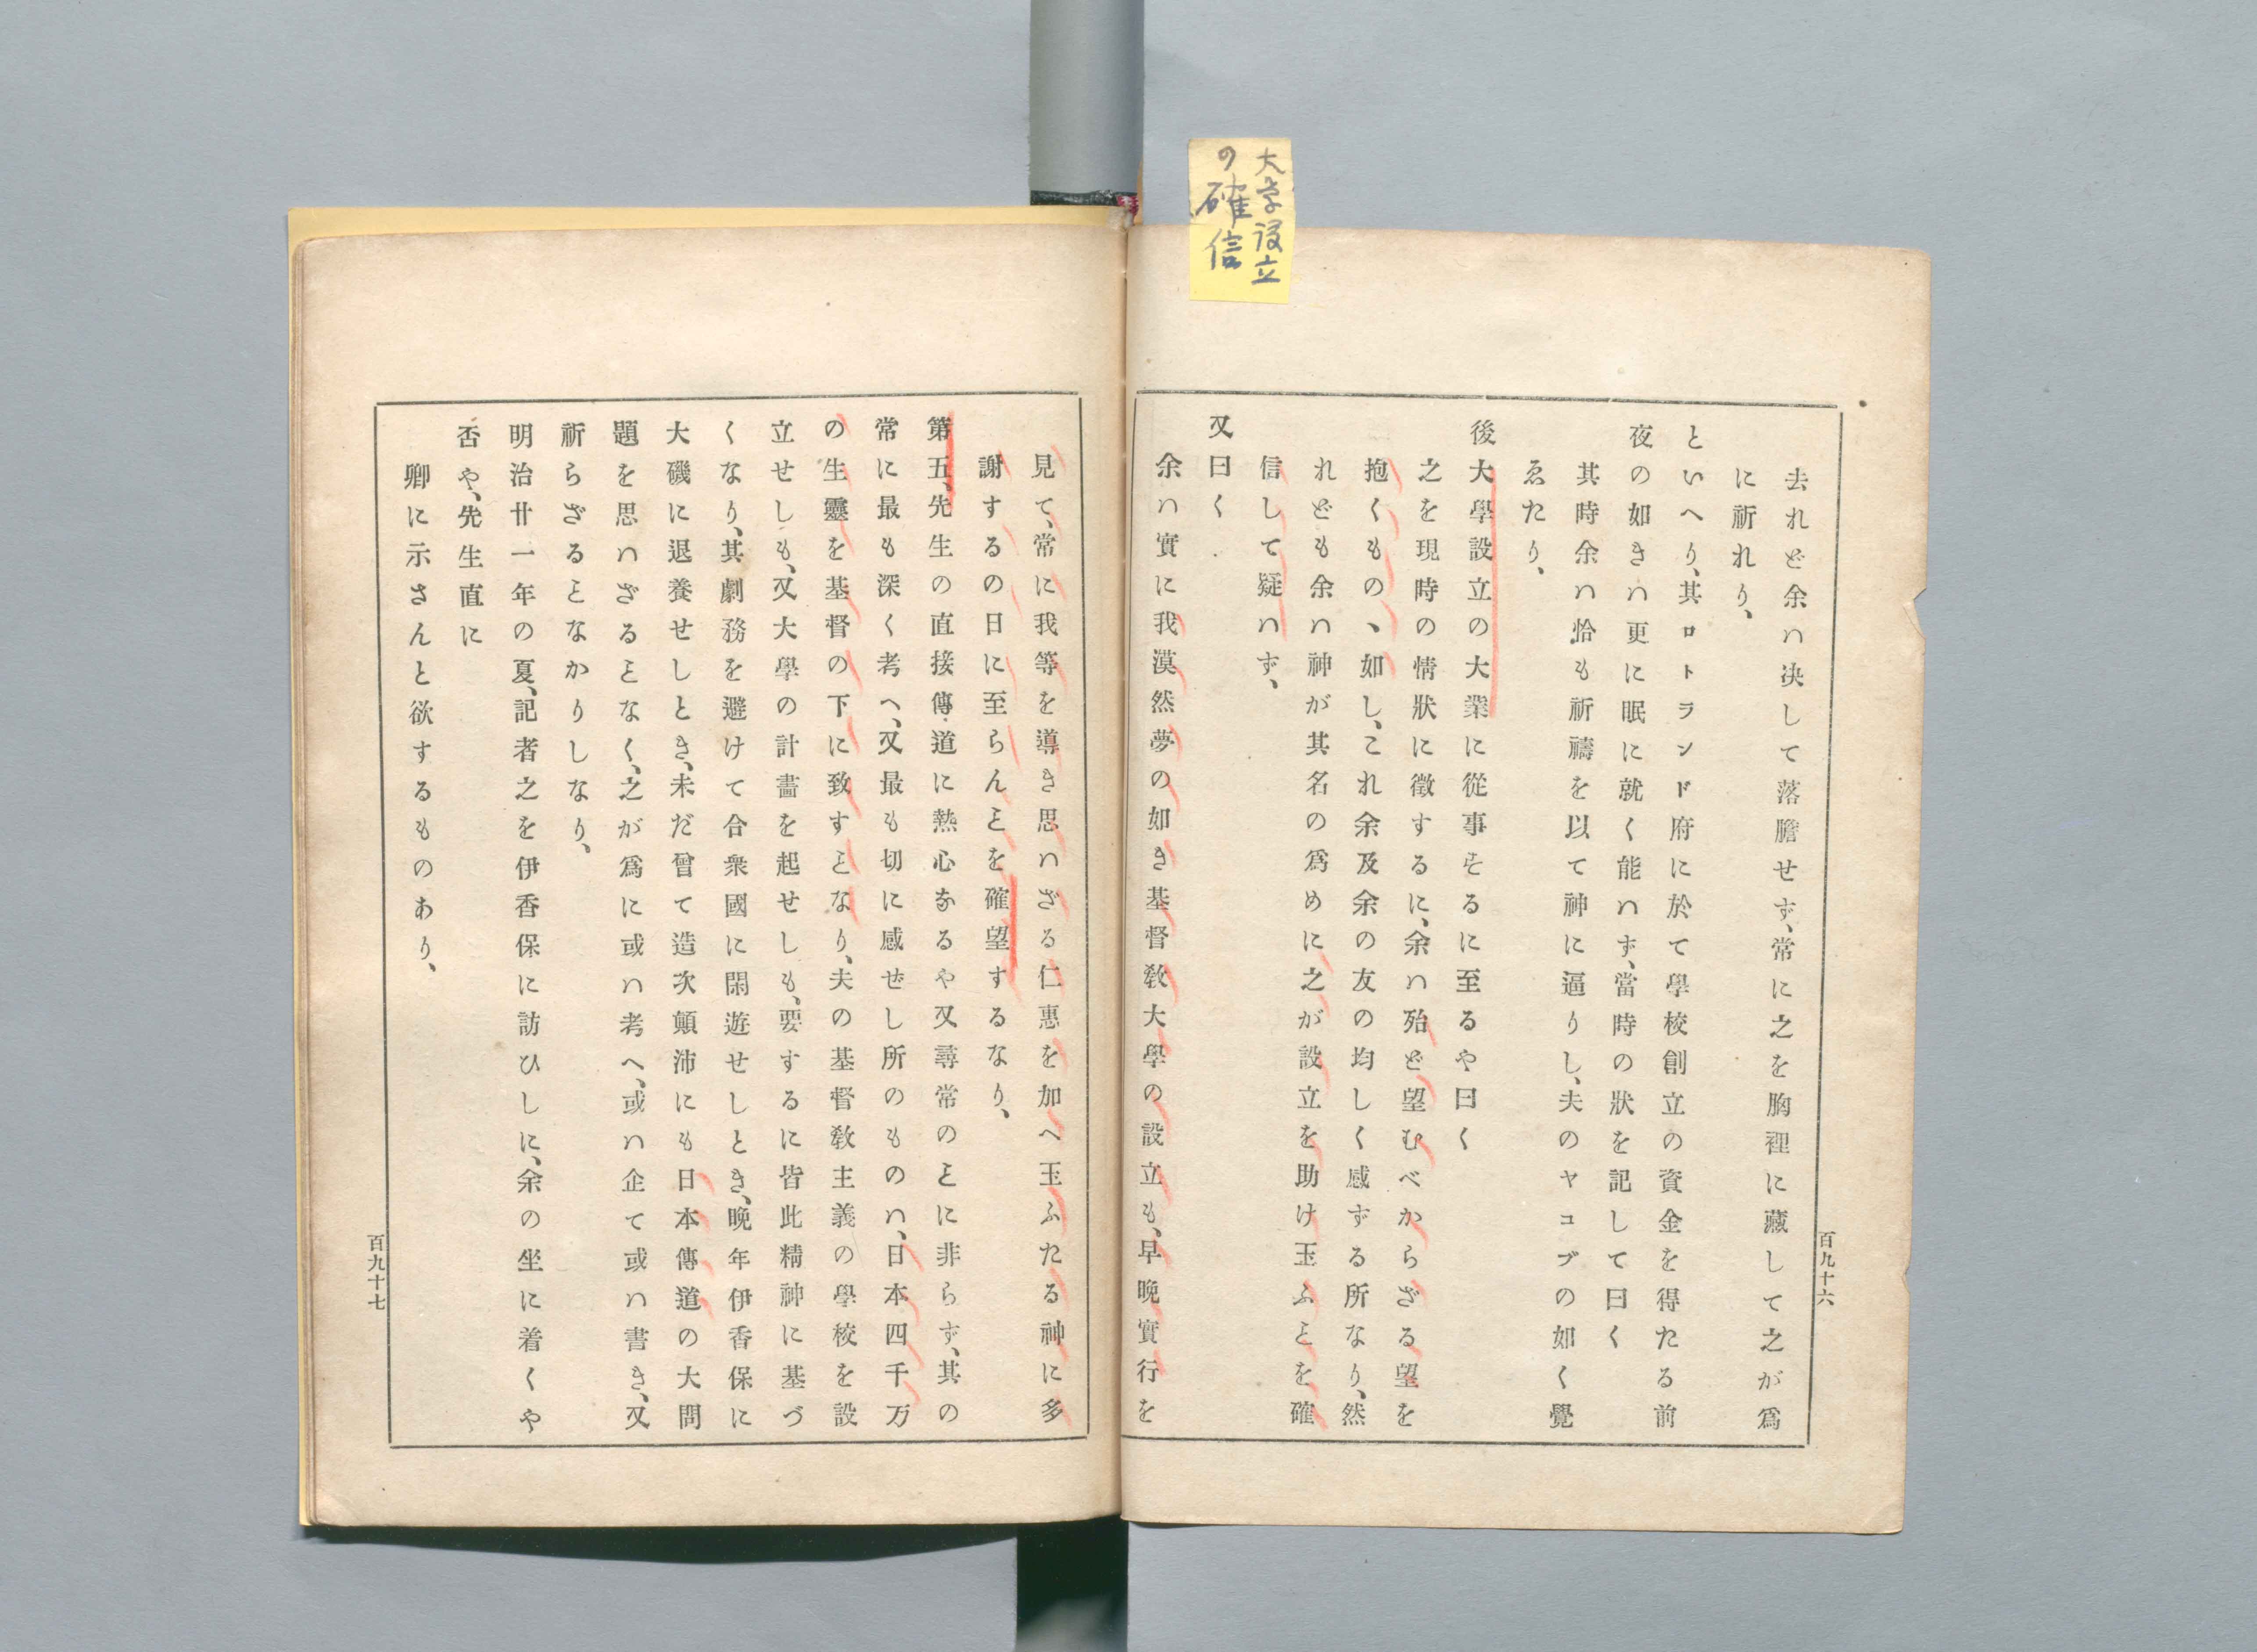 大学設立
の確信
去れど余ハ决して落膽せず、常に之を胸裡に藏して之が爲
に祈れり、
といへり、其ロトランド府に於て學校創立の資金を得たる前
夜の如きハ更に眠に就く能ハず、當時の狀を記して曰く
其時余ハ恰も祈禱を以て神に逼りし、夫のヤコブの如く覺
ゑたり、
後大學設立の大業に從事をるに至るや曰く
之を現時の情狀に徵するに、余ハ殆ど望むべからざる望を
抱くもの、如し、これ余及余の友の均しく感ずる所なり、然
れども余ハ神が其名の爲めに之が設立を助け玉ふヿを確
信して疑ハず、
又曰く
余ハ實に我漠然夢の如き基督敎大學の設立も、早晩實行を
百九十六
見て、常に我等を導き思ハざる仁惠を加へ玉ふたる神に多
謝するの日に至らんヿを確望するなり、
第五、先生の直接傳道に熱心なるや又尋常のヿに非らず、其の
常に最も深く考へ、又最も切に感ぜし所のものハ、日本四千万
の生靈を基督の下に致すヿなり、夫の基督敎主義の學校を設
立せしも、又大學の計畵を起せしも、要するに皆此精神に基づ
くなり、其劇務を避けて合衆國に閑遊せしとき、晩年伊香保に
大磯に退養せしとき、未だ曾て造次顛沛にも日本傳道の大問
題を思ハざるヿなく、之が爲に或ハ考へ、或ハ企て或ハ書き、又
祈らざるヿなかりしなり、
明治廿一年の夏、記者之を伊香保に訪ひしに、余の坐に着くや
否や、先生直に
卿に示さんと欲するものあり、
百九十七